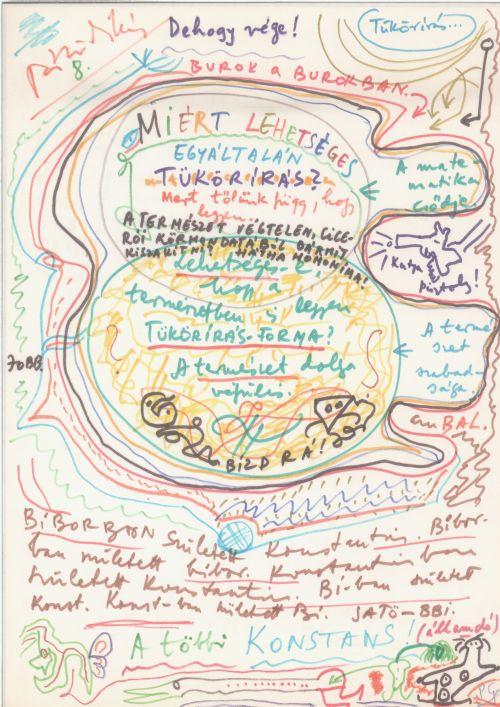 8.
Dehogy vége!
Tükörírás...
BUROK A BUROKBAN.
MIÉRT LEHETSÉGES
EGYÁLTALÁN
TÜKÖRÍRÁS?
Mert tőlünk függ, hogy
legyen.
A TERMÉSZET VÉGTELEN, CICE-
RÓI KÖRMONDATÁBÓL
Lehetséges-e,
hogy a
természetben is legyen
TÜKÖRÍRÁS-FORMA?
A természet dolga
BIZDRÁ!
A mate-
matika
csődje.
Kutya
Pisztoly!
A termé
szet
szabad-
sága.
JOBB
BAL.
BÍBORBAN született Konstantin. Bíbor-
ban született bíbor. Konstantinban
született Konstantin. Bí-ban született
Konst. Konst-ban született Bí. JATÓ-BBI.
A többi KONSTANS! (állandó)